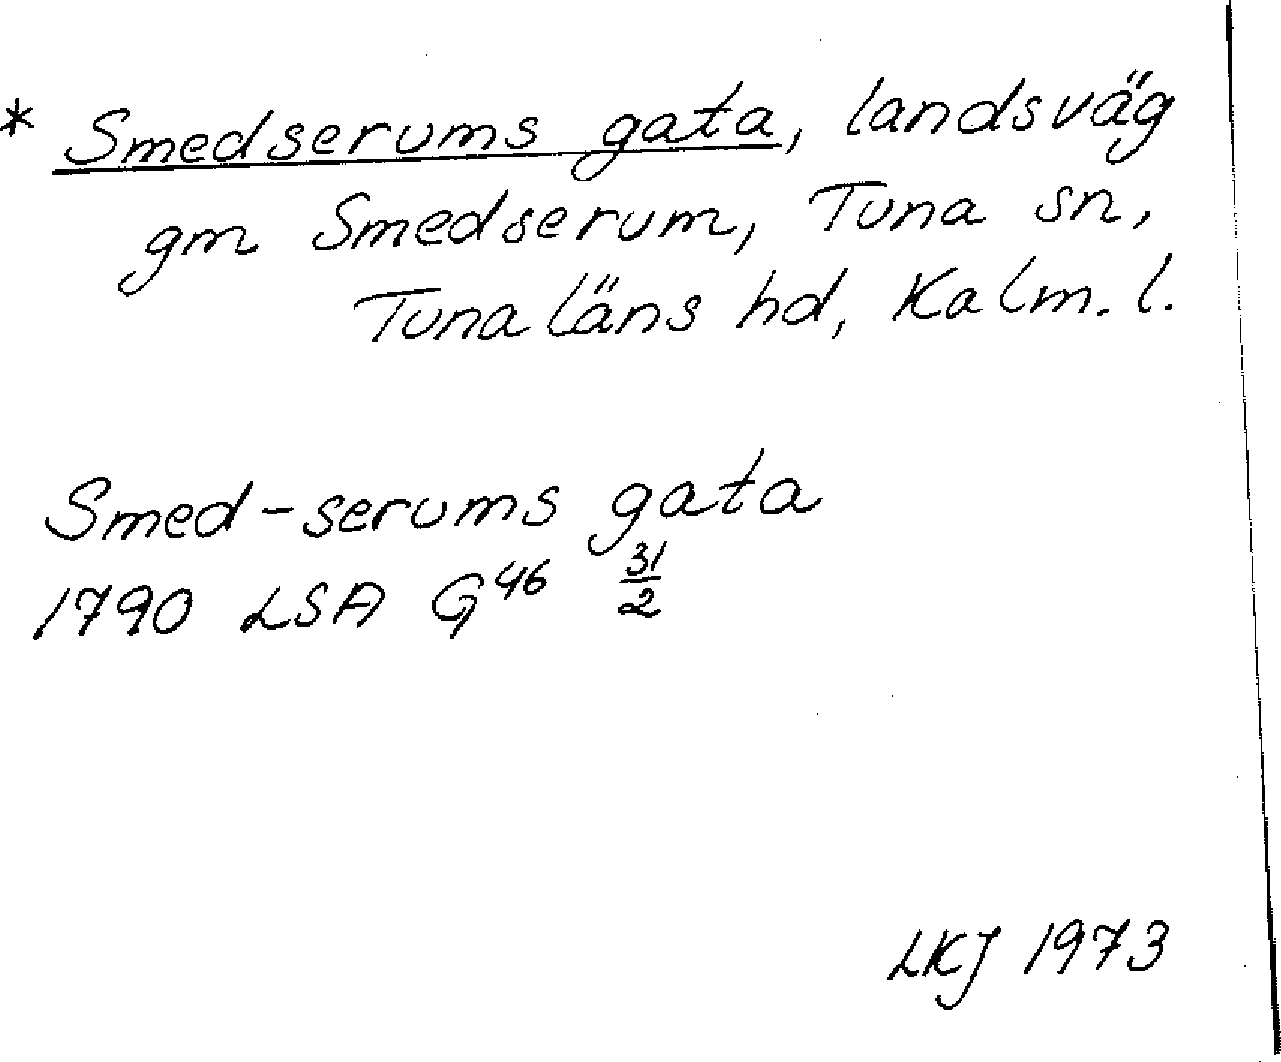 * Smedserums gata, landsväg
gm Smedserum, Tuna sn,
Tunaläns hd, Kalm. l.
Smed-serums gata
1790 LSA G46 31/2
LKJ 1973